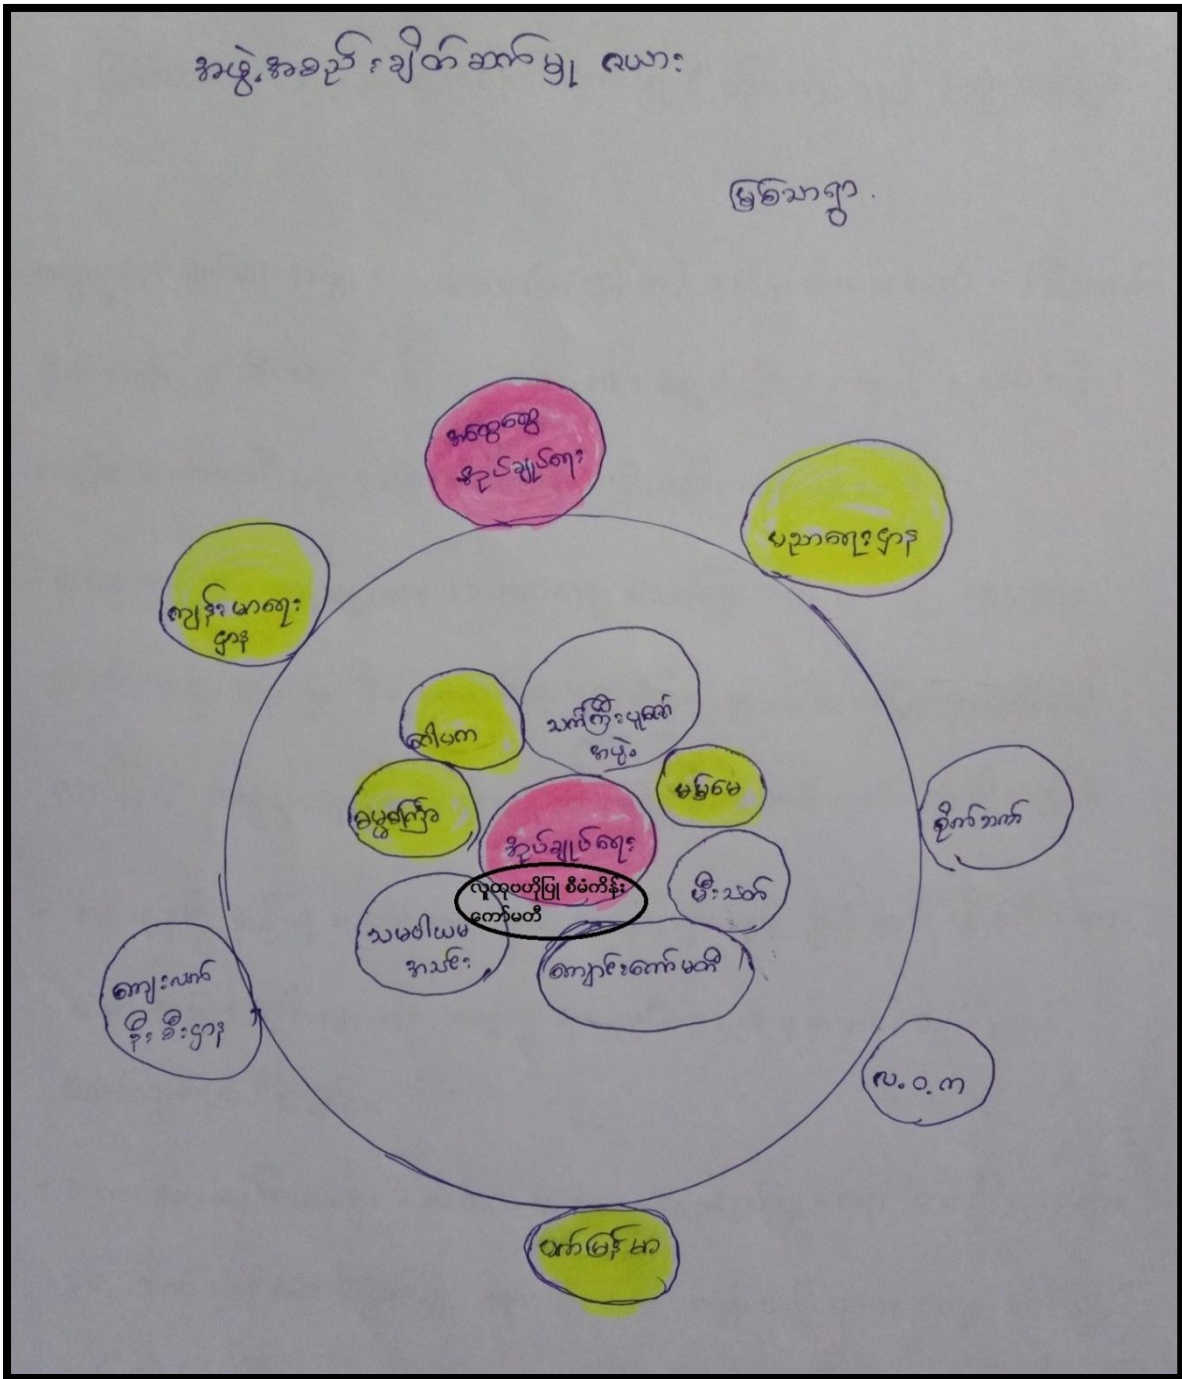 အဖွဲ့အစည်းချိတ်ဆက်မှု ဇယား
မြစ်သာရွာ.
အထွေထွေ
အုပ်ချုပ်ရေး
ပညာရေးဌာန
ကျန်းမာရေး
ဌာန
သက်ကြီးပူဇော်
အဖွဲ့
ဂေါပက
မမြမေ
ဓမ္မကြော
အုပ်ချုပ်ရေး
လူထုဗဟိုပြု စီမံကိန်း
ကော်မတီ
မီးသတ်
စိုက်ဘဏ်
သမဝါယမ
အသင်း
ကျောင်းကော်မတီ
ကျေးလက်
ဦးစီးဌာန
လ.ဝ.က
ပက်မြန်မာ